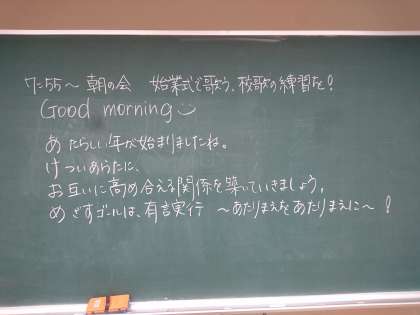 7:55〜 朝の会　始業式で歌う、校歌の練習を！
Good morning
あたらしい年が始まりましたね。
けついあらたに、
お互いに高め合える関係を築いていきましょう。
めざすゴールは、有言実行　〜あたりまえをあたりまえに〜！